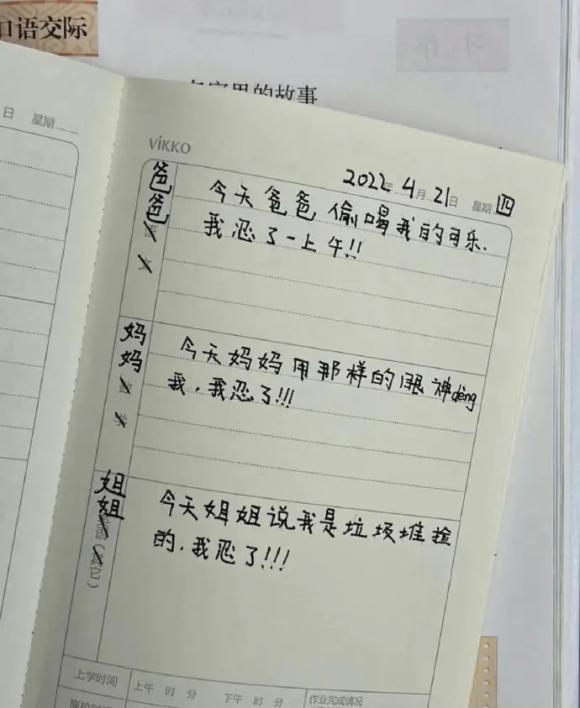 口语交际
名字里的故事
日 星期
VIKKO
2022年 4月 21日 星期四
爸爸
今天爸爸偷喝我的可乐.
我忍了一上午!!
妈妈
今天妈妈用那样的眼神dèng
我,我忍了!!!
姐姐
今天姐姐说我是垃圾堆捡
的,我忍了!!!
上学时间 上午 时 分 下午 时 分 作业完成情况